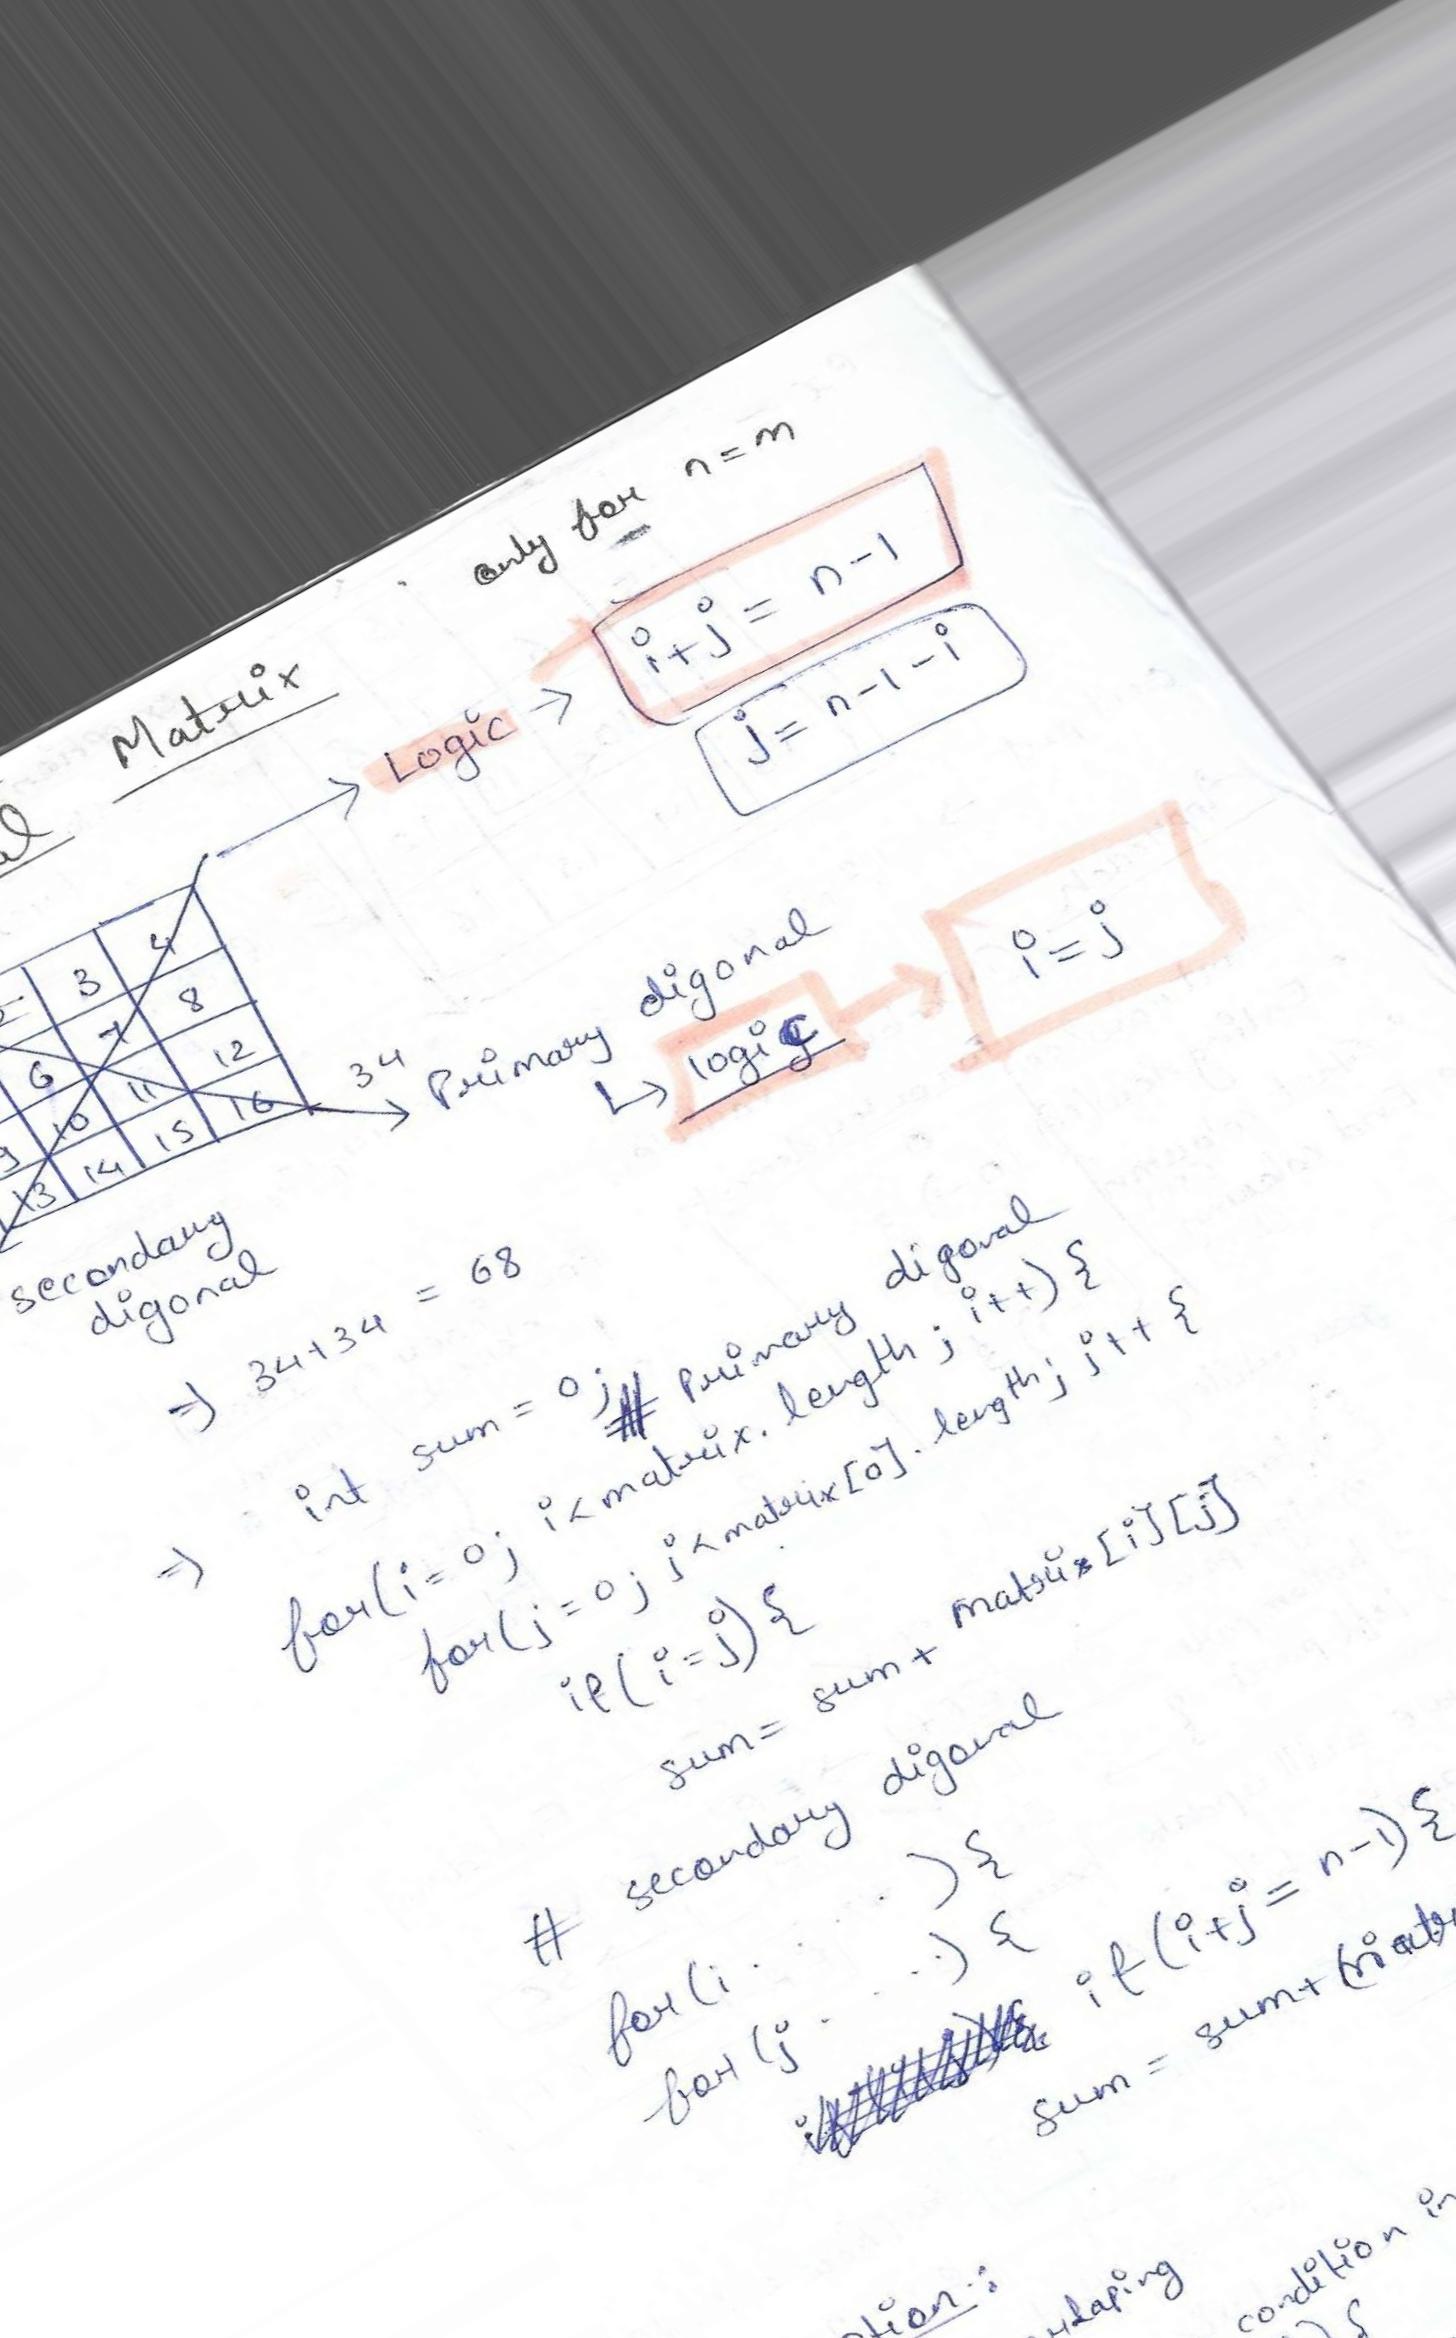 only for n = m
Matrix
Logic → i+j = n-1
j = n-1-i
3 4
6 7 8
10 11 12
13 14 15 16
34
Primary digonal
↳ logic → i = j
secondary
digonal
⇒ 34+34 = 68
⇒ int sum = 0; # Primary digonal
for(i = 0; i < matrix.length; i++) {
for(j = 0; j < matrix[0].length; j++ {
if(i=j) {
sum = sum + matrix[i][j]
# secondary digonal
for(i . . . .) {
for(j . . . .) {
if(i+j = n-1) {
sum = sum +
condition in